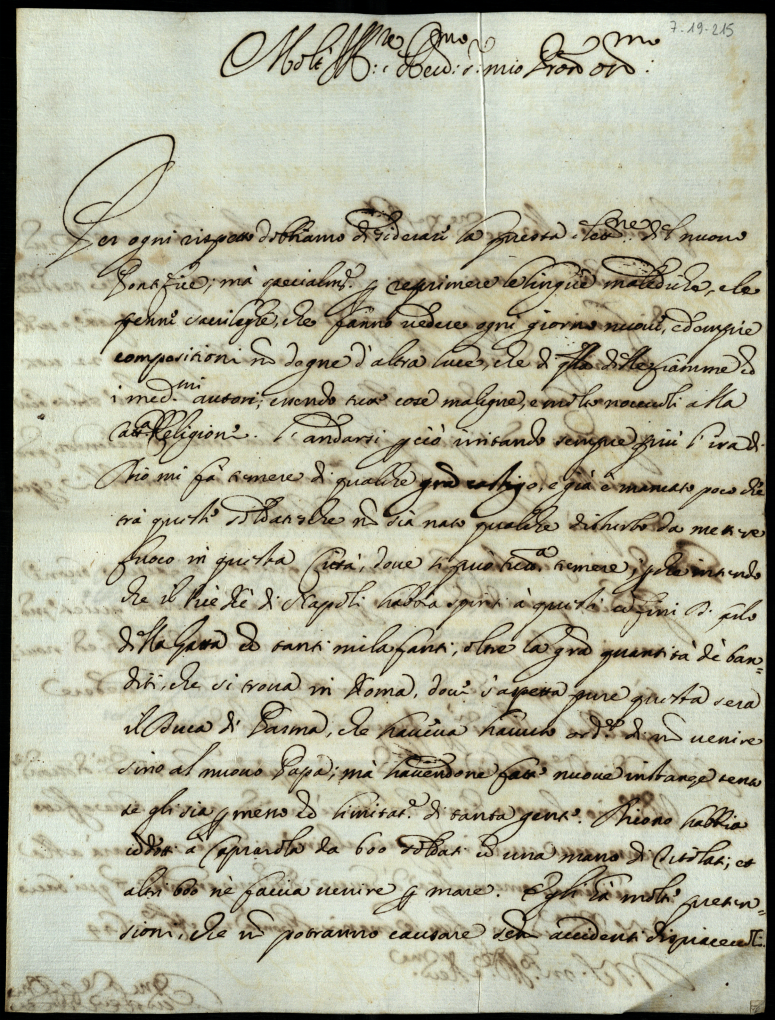 7-19-215
Molt' Ill.re e Rev.mo s.r mio P.ron oss.mo
Per ogni rispetto dobbiamo desiderare la presta elett.ne del nuovo
Pontefice; mà specialm.te p reprimere le lingue malediche, e le
penne sacrileghe, che fanno vedere ogni giorno nuove, ed empie
compositioni nõ degne d'altra luce, che di q.lla delle fiamme cõ
i med.mi autori, essendo tutte cose maligne, e molto nocevoli alla
Religione. L'andarsi p ciò irritando sempre più l'ira di
Dio mi fà temere di qualche grã castigo, e già è mancato poco che
trà questi soldati che nõ sia nato qualche disturbo da mettere
fuoco in questa Città, dove si può temere, intendo
che il Vice Rè di Napoli habbia spinti à questi cõfini D. Carlo
della Gatta cõ tanti mila fanti, oltre la grã quantità de ban=
diti, che si trova in Roma, dove s'aspetta pure questa sera
il Duca di Parma, che haveva havuto ord.e di nõ venire
sino al nuovo Papa; mà havendone fatte nuove instanze
se gli sia pmesso cõ limitat.e di tanta gente. Dicono habbia
cõdotti à Caprarola da 600 soldati cõ una mano di Titolati; et
altri 600 nè faccia venire p mare. Egli hà molte preten=
sioni, che nõ potranno causare se nõ accidenti dispiacevoli.